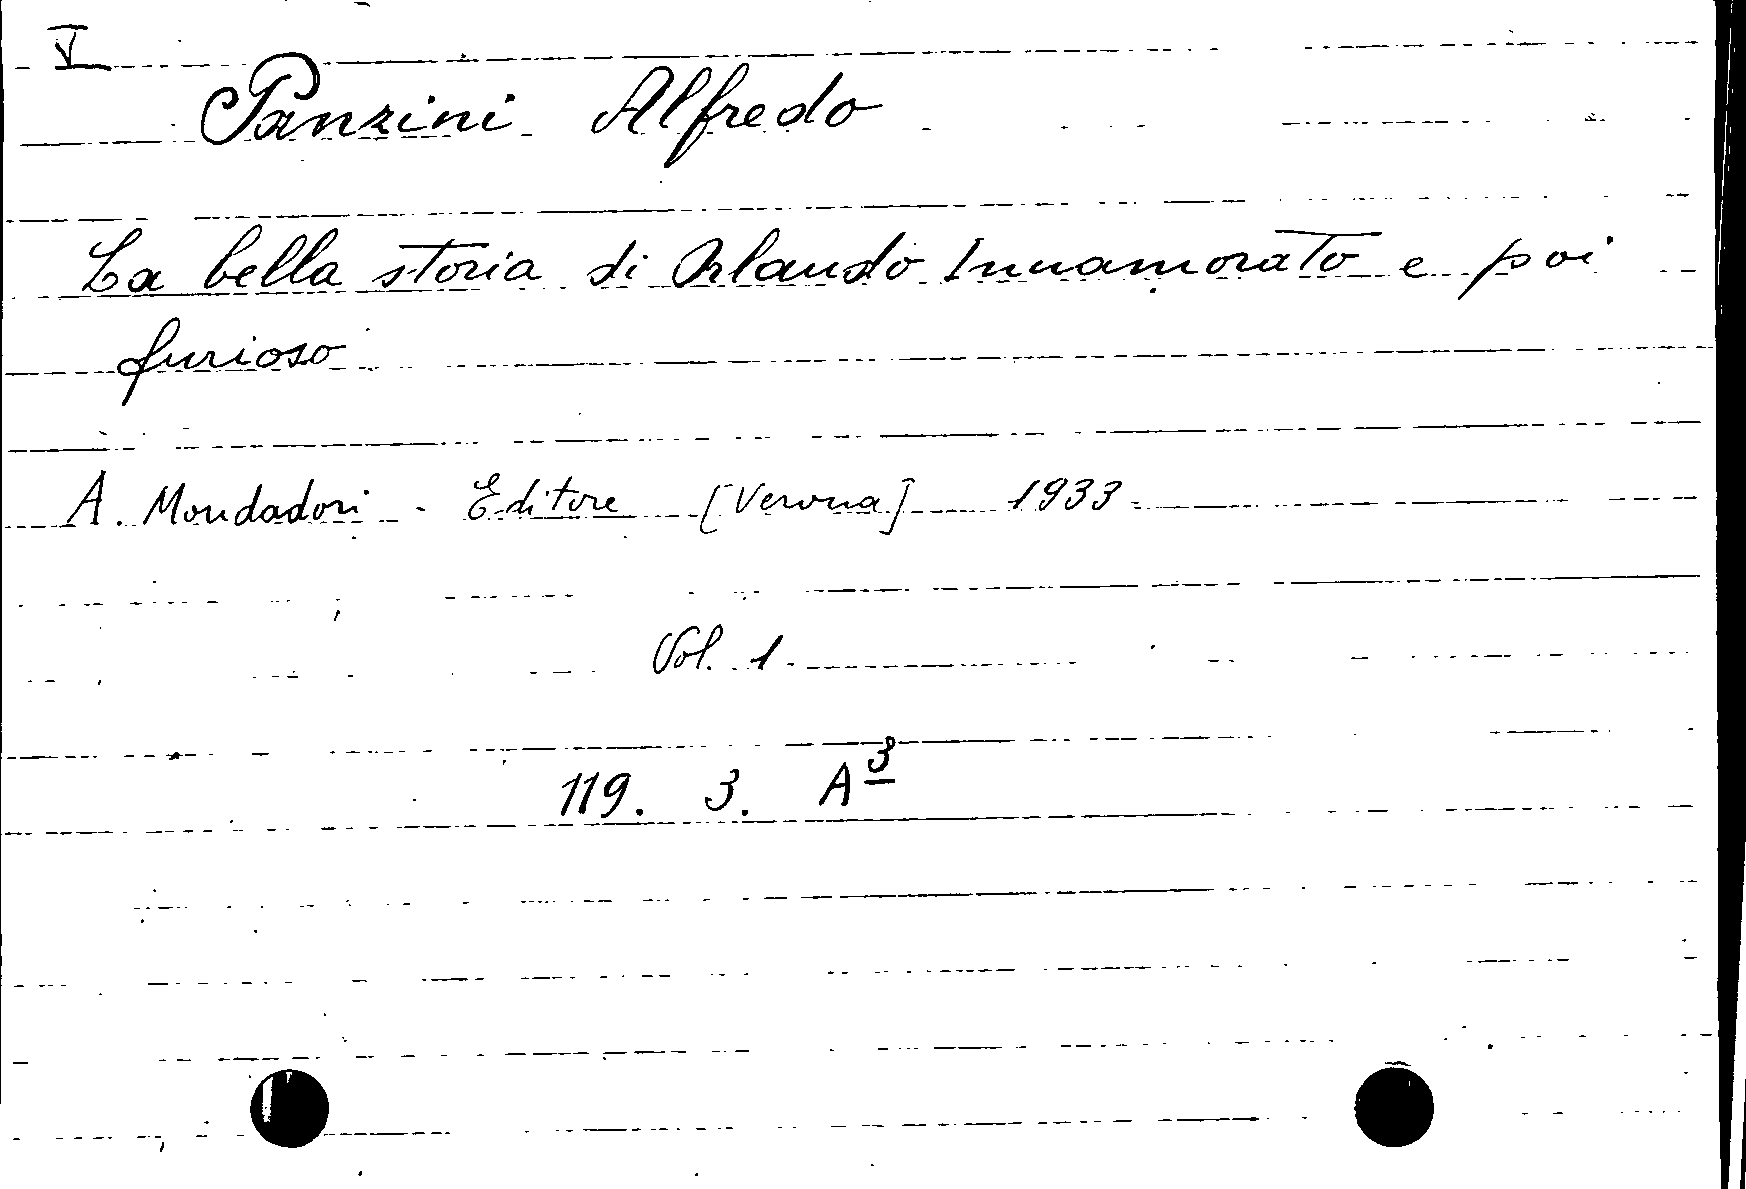 V
Panzini Alfredo
La bella storia di Orlando Innamorato e poi
furioso
A. Mondadori - Editore [Verona] 1933
Vol. 1
119. 3. A3